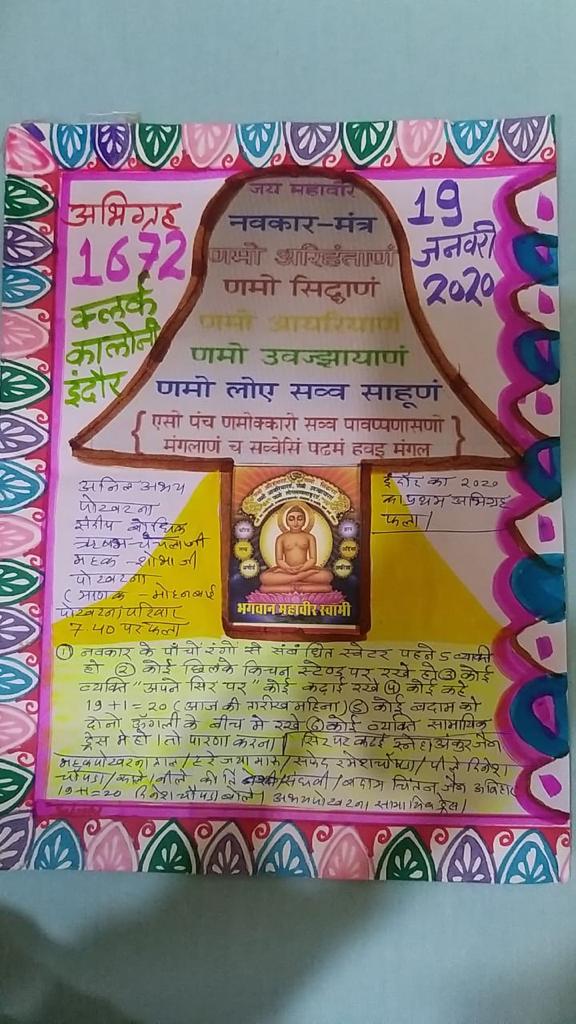 अभिग्रह
1672
क्लर्क
कालोनी
इंदौर
जय महावीर
नवकार-मंत्र
णमो अरिहंताणं
णमो सिद्धाणं
णमो आयरियाणं
णमो उवज्झायाणं
णमो लोए सव्व साहूणं
{ एसो पंच णमोक्कारो सव्व पावप्पणासणो
मंगलाणं च सव्वेसिं पढमं हवइ मंगल }
19
जनवरी
2020
अनिल अभय
पोखरना
संदीप
ऋषभ-चंचलाजी
महक-शोभा जी
पोखरना
( माणक - मोहनबाई
पोखरना परिवार
7-40 पर फला
भगवान महावीर स्वामी
इंदौर का 2020
का प्रथम अभिग्रह
फला।
① नवकार के पाँचो रंगो से संबंधित स्वेटर पहने 5 व्यक्ति
हो ② कोई छिलके किचन स्टेण्ड पर रखे हो ③ कोई
व्यक्ति "अपने सिर पर" कोई कढ़ाई रखे ④ कोई कहे
19+1=20 (आज की तारीख महिना) ⑤ कोई बादाम को
दोनो उंगली के बीच मे रखे ⑥ कोई व्यक्ति सामायिक
ड्रेस मे हो। तो पारणा करना। सिर पर कढाई स्नेहा अंकुर जैन
महक पोखरना लाल / हरे जया मारू / सफेद रमेश चौपडा / पीले दिनेश
चौपडा / काले / नीले / संघवी / बादाम चिंतन जैन
19+1=20 दिनेश चौपडा बोले। अभय पोखरना सामायिक ड्रेस।